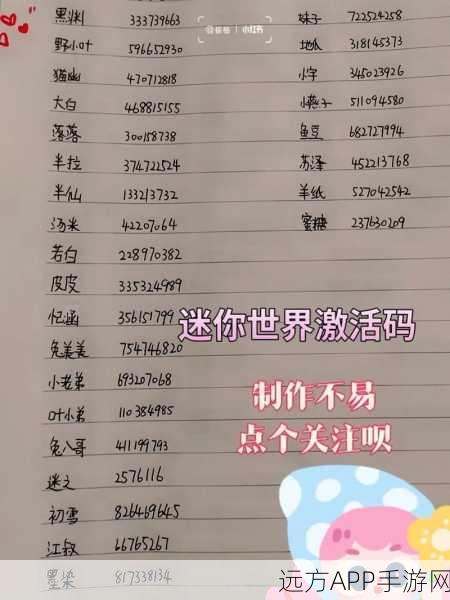 黑渊 333739663
野小叶 596652930
猫幽 470712818
大白 468815155
落落 300158738
半拉 374722524
半仙 133213732
汤米 42207064
若白 228970382
皮皮 335324989
忆涵 356151799
兔美美 754746820
小老弟 693207068
叶小弟 110384985
兔八哥 411199793
迷之 2576116
初雪 826469645
江叙 66765267
墨染 817338134
妹子 722524258
地瓜 318145373
小宇 345023926
小燕子 511094580
鱼豆 682727994
苏泽 452213768
羊纸 527042542
蜜糖 237630209
小红书
迷你世界激活码
制作不易
点个关注呗
远方APP手游网